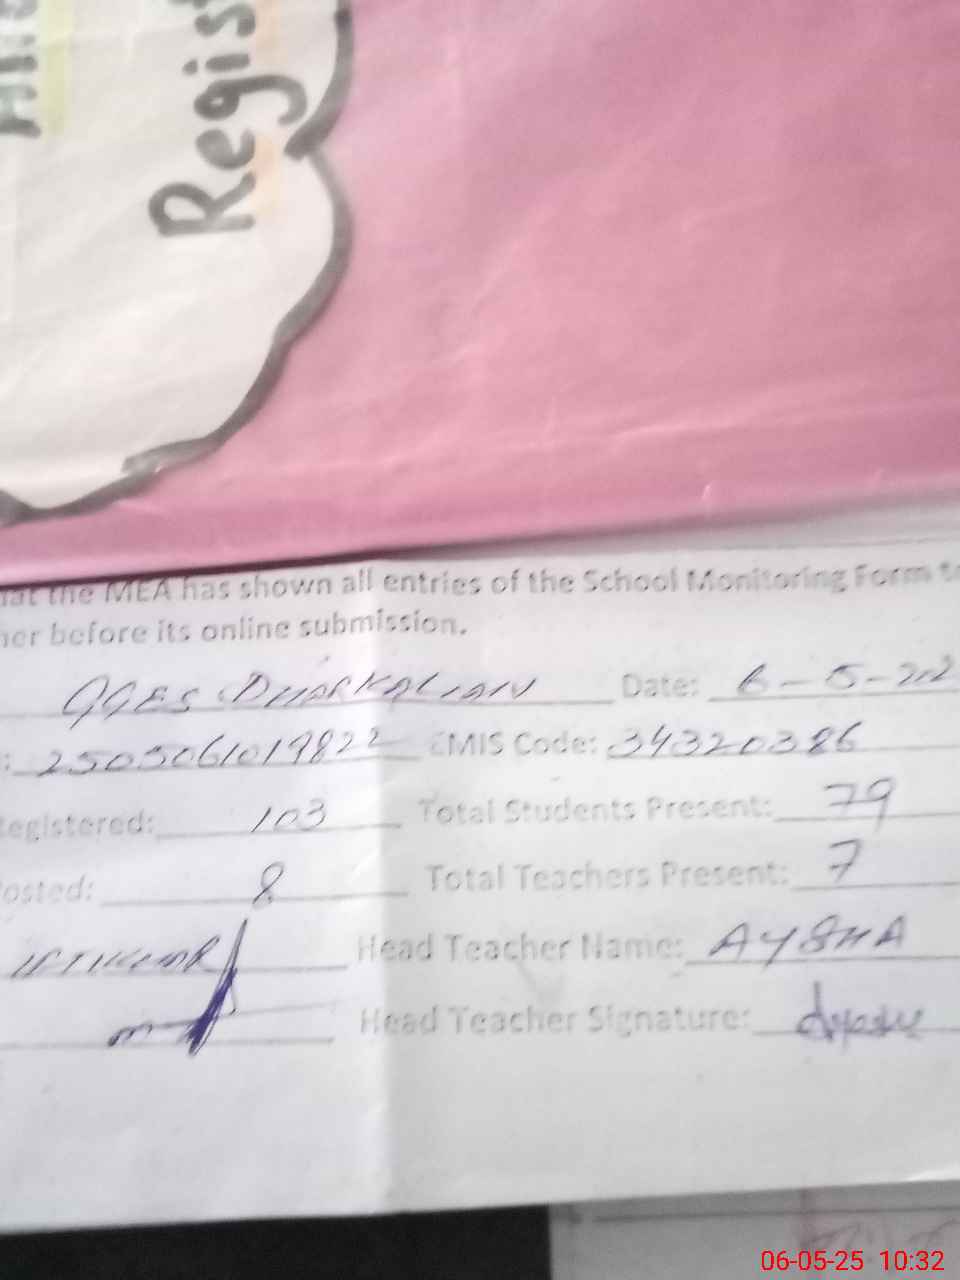 Regis
the MEA has shown all entries of the School Monitoring Form
before its online submission.
GGES DHARKALIAN Date: 6-5-202
: 2505061019822 EMIS Code: 34320386
Registered: 103 Total Students Present: 79
Posted: 8 Total Teachers Present: 7
IFTIKHAR Head Teacher Name: AYSHA
Head Teacher Signature:
06-05-25 10:32